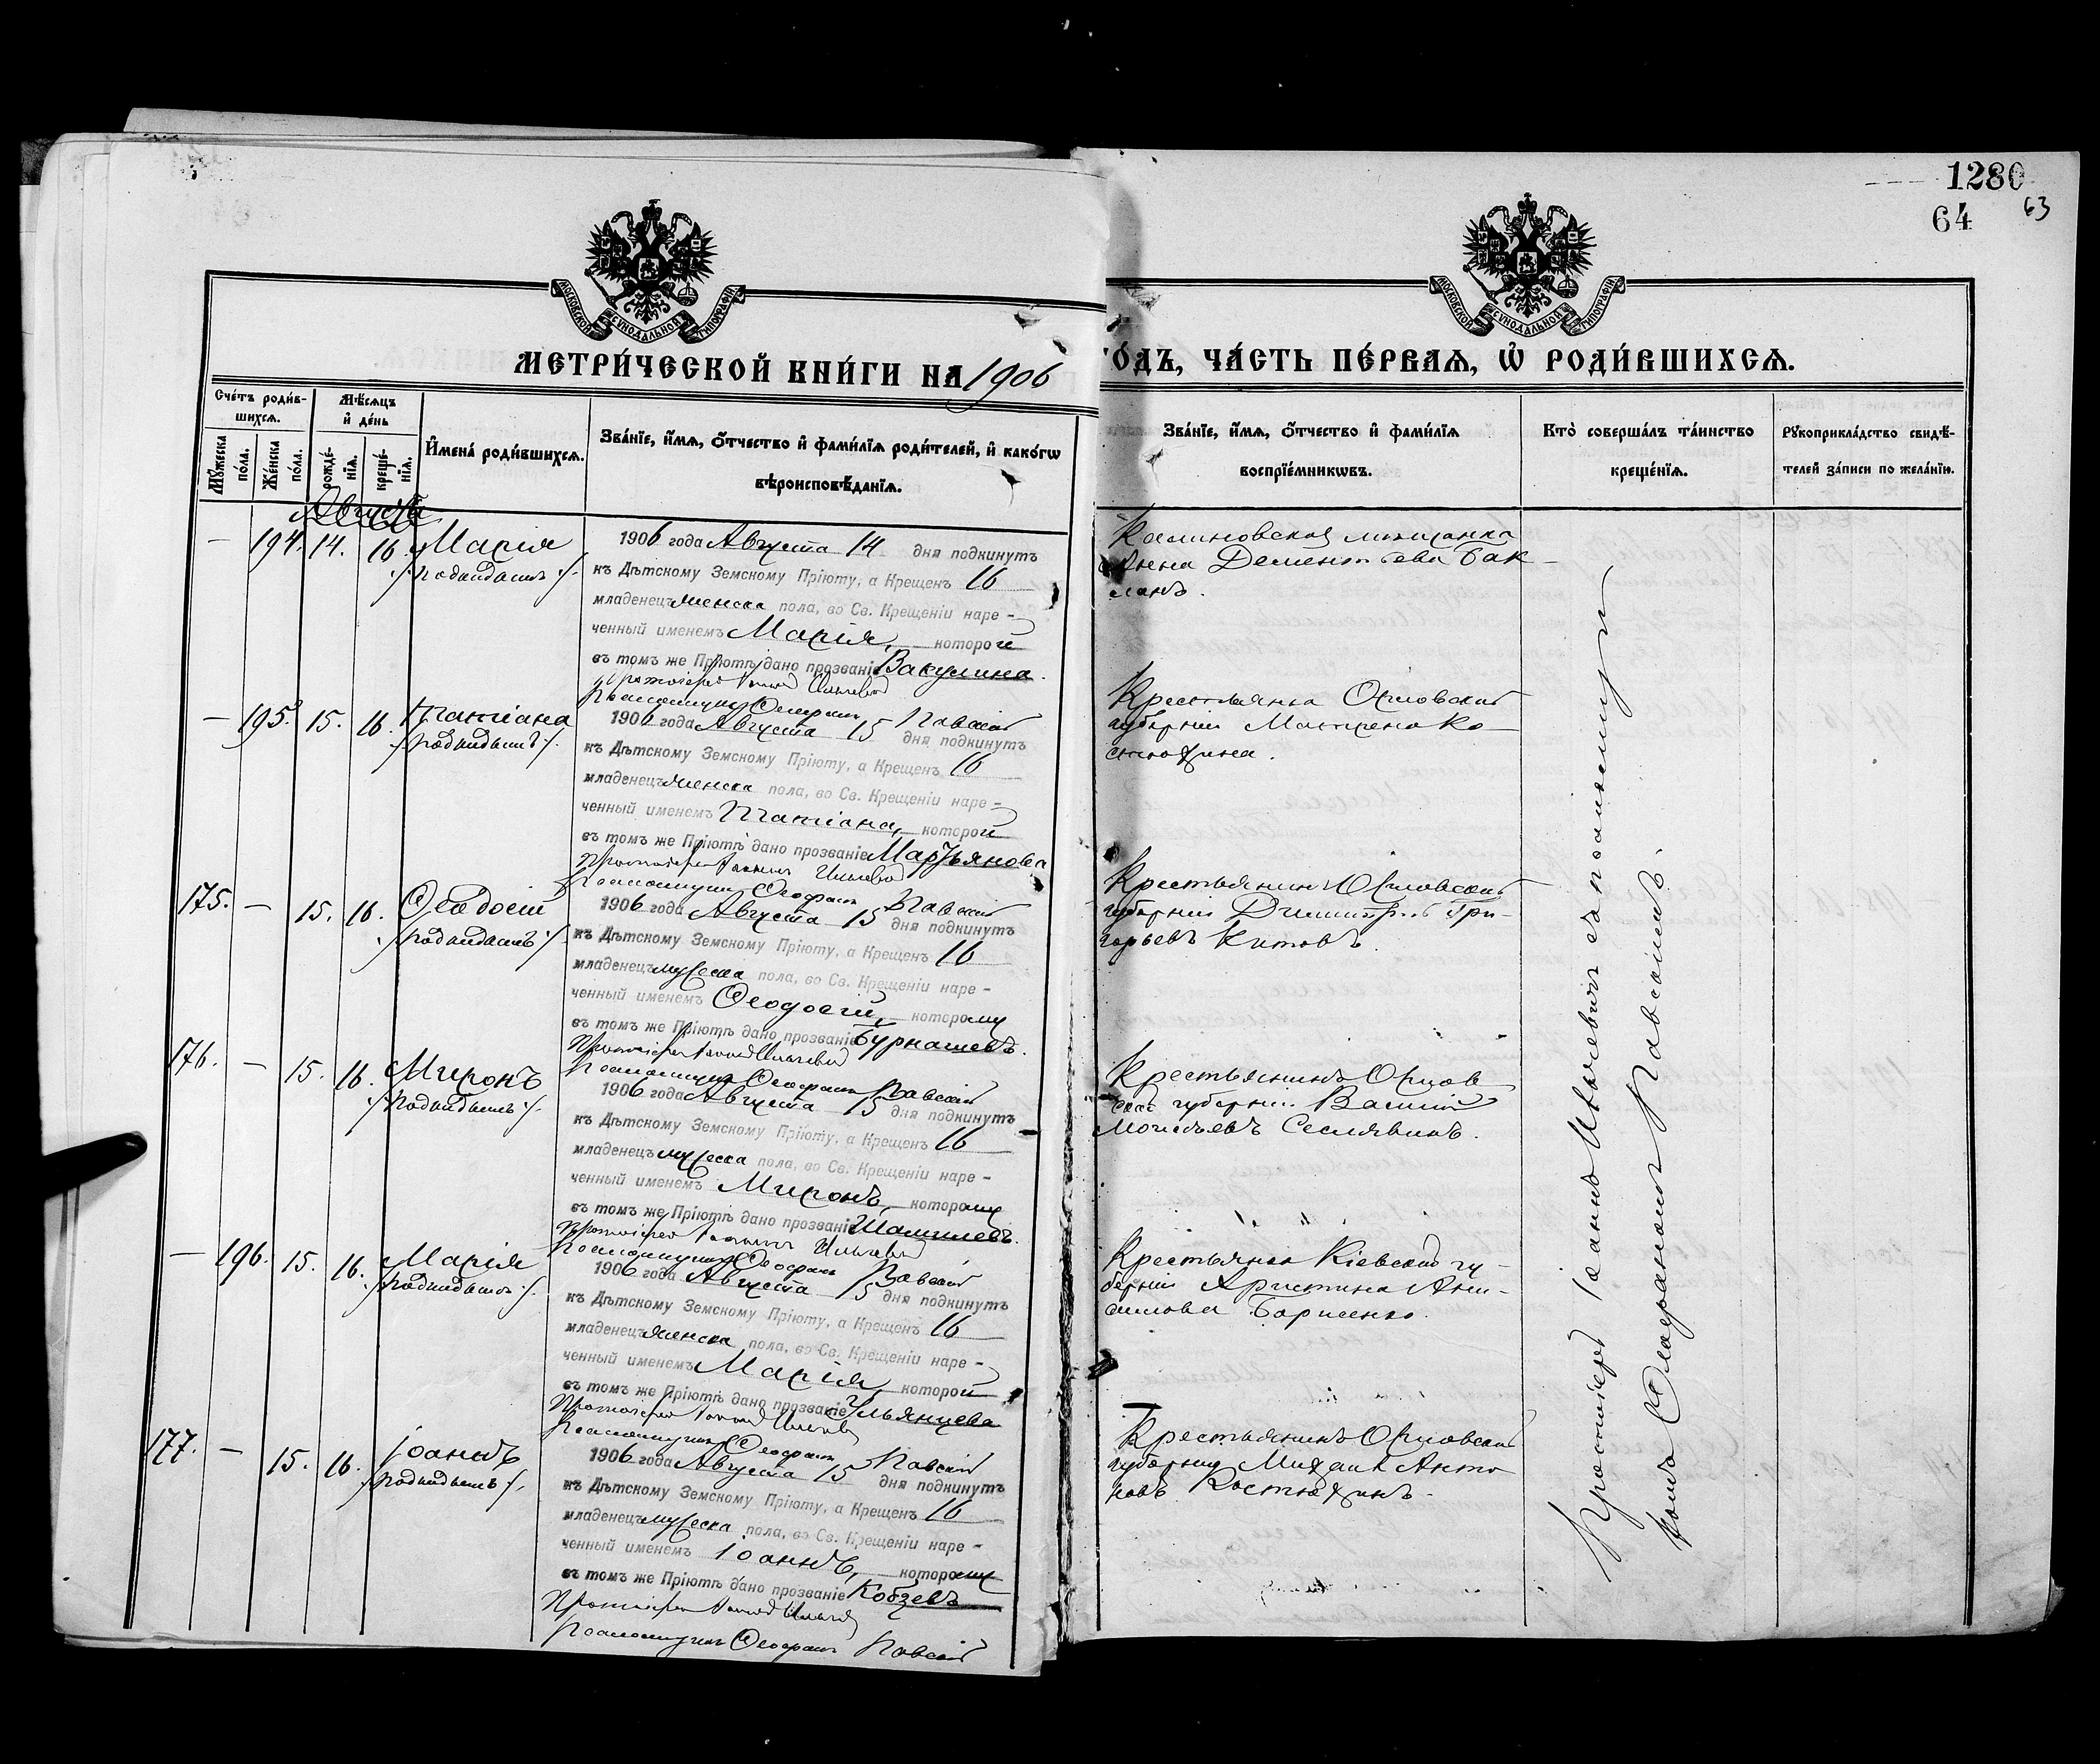 1280
64 63
МОСКОВСКОЙ СѴНОДАЛЬНОЙ ТИПОГРАФІИ
МОСКОВСКОЙ СѴНОДАЛЬНОЙ ТИПОГРАФІИ
МЕТРИ́ЧЕСКОЙ КНИ́ГИ НА 1906
ГО́ДЪ, ЧА́СТЬ ПЕ́РВАѦ, Ѡ҆ РОДИ́ВШИХСѦ.
Сче́тъ роди́в-
шихсѧ.
Мꙋ́жеска по́ла.
Же́нска по́ла.
Мѣ́сѧцъ
и҆ де́нь
рожде́-
нїѧ.
креще́-
нїѧ.
И҆мена̀ роди́вшихсѧ.
Зва́нїе, и҆́мѧ, ѻ҆́тчество и҆ фами́лїѧ роди́телей, и҆ како́гѡ
вѣроисповѣ́данїѧ.
Зва́нїе, и҆́мѧ, ѻ҆́тчество и҆ фами́лїѧ
воспрїе́мникѡвъ.
Кто̀ соверша́лъ та́инство
креще́нїѧ.
Рꙋкоприкла́дство свидѣ́-
телей за́писи по жела́нїю.
Августъ
— 194. 14. 16. Марія
/:Подкидышъ:/.
1906 года Августа 14 дня подкинутъ
къ Дѣтскому Земскому Пріюту, а Крещенъ 16
младенецъ женска пола, во Св. Крещеніи наре-
ченный именемъ Марія, которой
въ томъ же Пріютѣ дано прозваніе Вакулина.
Протоіерей Іоаннъ Ильичевъ
Псаломщикъ Ѳеофанъ Павскій
мѣщанка
Анна Дементьева Бак-
ланъ.
— 195. 15. 16. Татіана
/:Подкидышъ:/.
1906 года Августа 15 дня подкинутъ
къ Дѣтскому Земскому Пріюту, а Крещенъ 16
младенецъ женска пола, во Св. Крещеніи наре-
ченный именемъ Татіана, которой
въ томъ же Пріютѣ дано прозваніе Мартьянова
Протоіерей Іоаннъ Ильичевъ
Псаломщикъ Ѳеофанъ Павскій
Крестьянка Орловской
губерніи Матрена Ко-
стюхина.
175. — 15. 16. Ѳеодосій
/:Подкидышъ:/.
1906 года Августа 15 дня подкинутъ
къ Дѣтскому Земскому Пріюту, а Крещенъ 16
младенецъ мужеска пола, во Св. Крещеніи наре-
ченный именемъ Ѳеодосій, которому
въ томъ же Пріютѣ дано прозваніе Бурнашевъ.
Протоіерей Іоаннъ Ильичевъ
Псаломщикъ Ѳеофанъ Павскій
Крестьянинъ Орловской
губерніи Димитрій Гри-
горьевъ Китовъ.
176. — 15. 16. Миронъ
/:Подкидышъ:/.
1906 года Августа 15 дня подкинутъ
къ Дѣтскому Земскому Пріюту, а Крещенъ 16
младенецъ мужеска пола, во Св. Крещеніи наре-
ченный именемъ Миронъ, которому
въ томъ же Пріютѣ дано прозваніе
Протоіерей Іоаннъ Ильичевъ
Псаломщикъ Ѳеофанъ Павскій
Крестьянинъ Орлов
ской губерніи Василій
Моисѣевъ Сеслявинъ.
— 196. 15. 16. Марія
/:Подкидышъ:/.
1906 года Августа 15 дня подкинутъ
къ Дѣтскому Земскому Пріюту, а Крещенъ 16
младенецъ женска пола, во Св. Крещеніи наре-
ченный именемъ Марія, которой
въ томъ же Пріютѣ дано прозваніе Ульянцева
Протоіерей Іоаннъ Ильичевъ
Псаломщикъ Ѳеофанъ Павскій
Крестьянка Кіевской гу-
берніи Христина Ани-
симова Борисенко.
177. — 15. 16. Іоаннъ
/:Подкидышъ:/.
1906 года Августа 15 дня подкинутъ
къ Дѣтскому Земскому Пріюту, а Крещенъ 16
младенецъ мужеска пола, во Св. Крещеніи наре-
ченный именемъ Іоаннъ, которому
въ томъ же Пріютѣ дано прозваніе Кобзевъ
Протоіерей Іоаннъ Ильичевъ
Псаломщикъ Ѳеофанъ Павскій
Крестьянинъ Орловской
губерніи Михаилъ Анто
новъ Костюхинъ.
Протоіерей Іоаннъ Ильичевъ съ псаломщи
комъ Ѳеофаномъ Павскимъ.